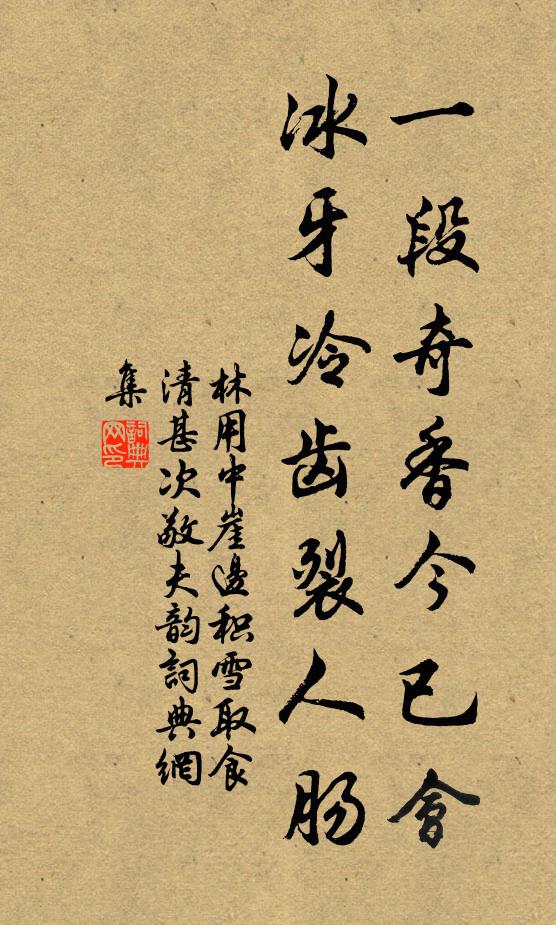 一段奇香今已會
冰牙冷齿裂人肠
林用中崖邊积雪取食
清甚次敬夫韵詞典網
集
詞典
网印